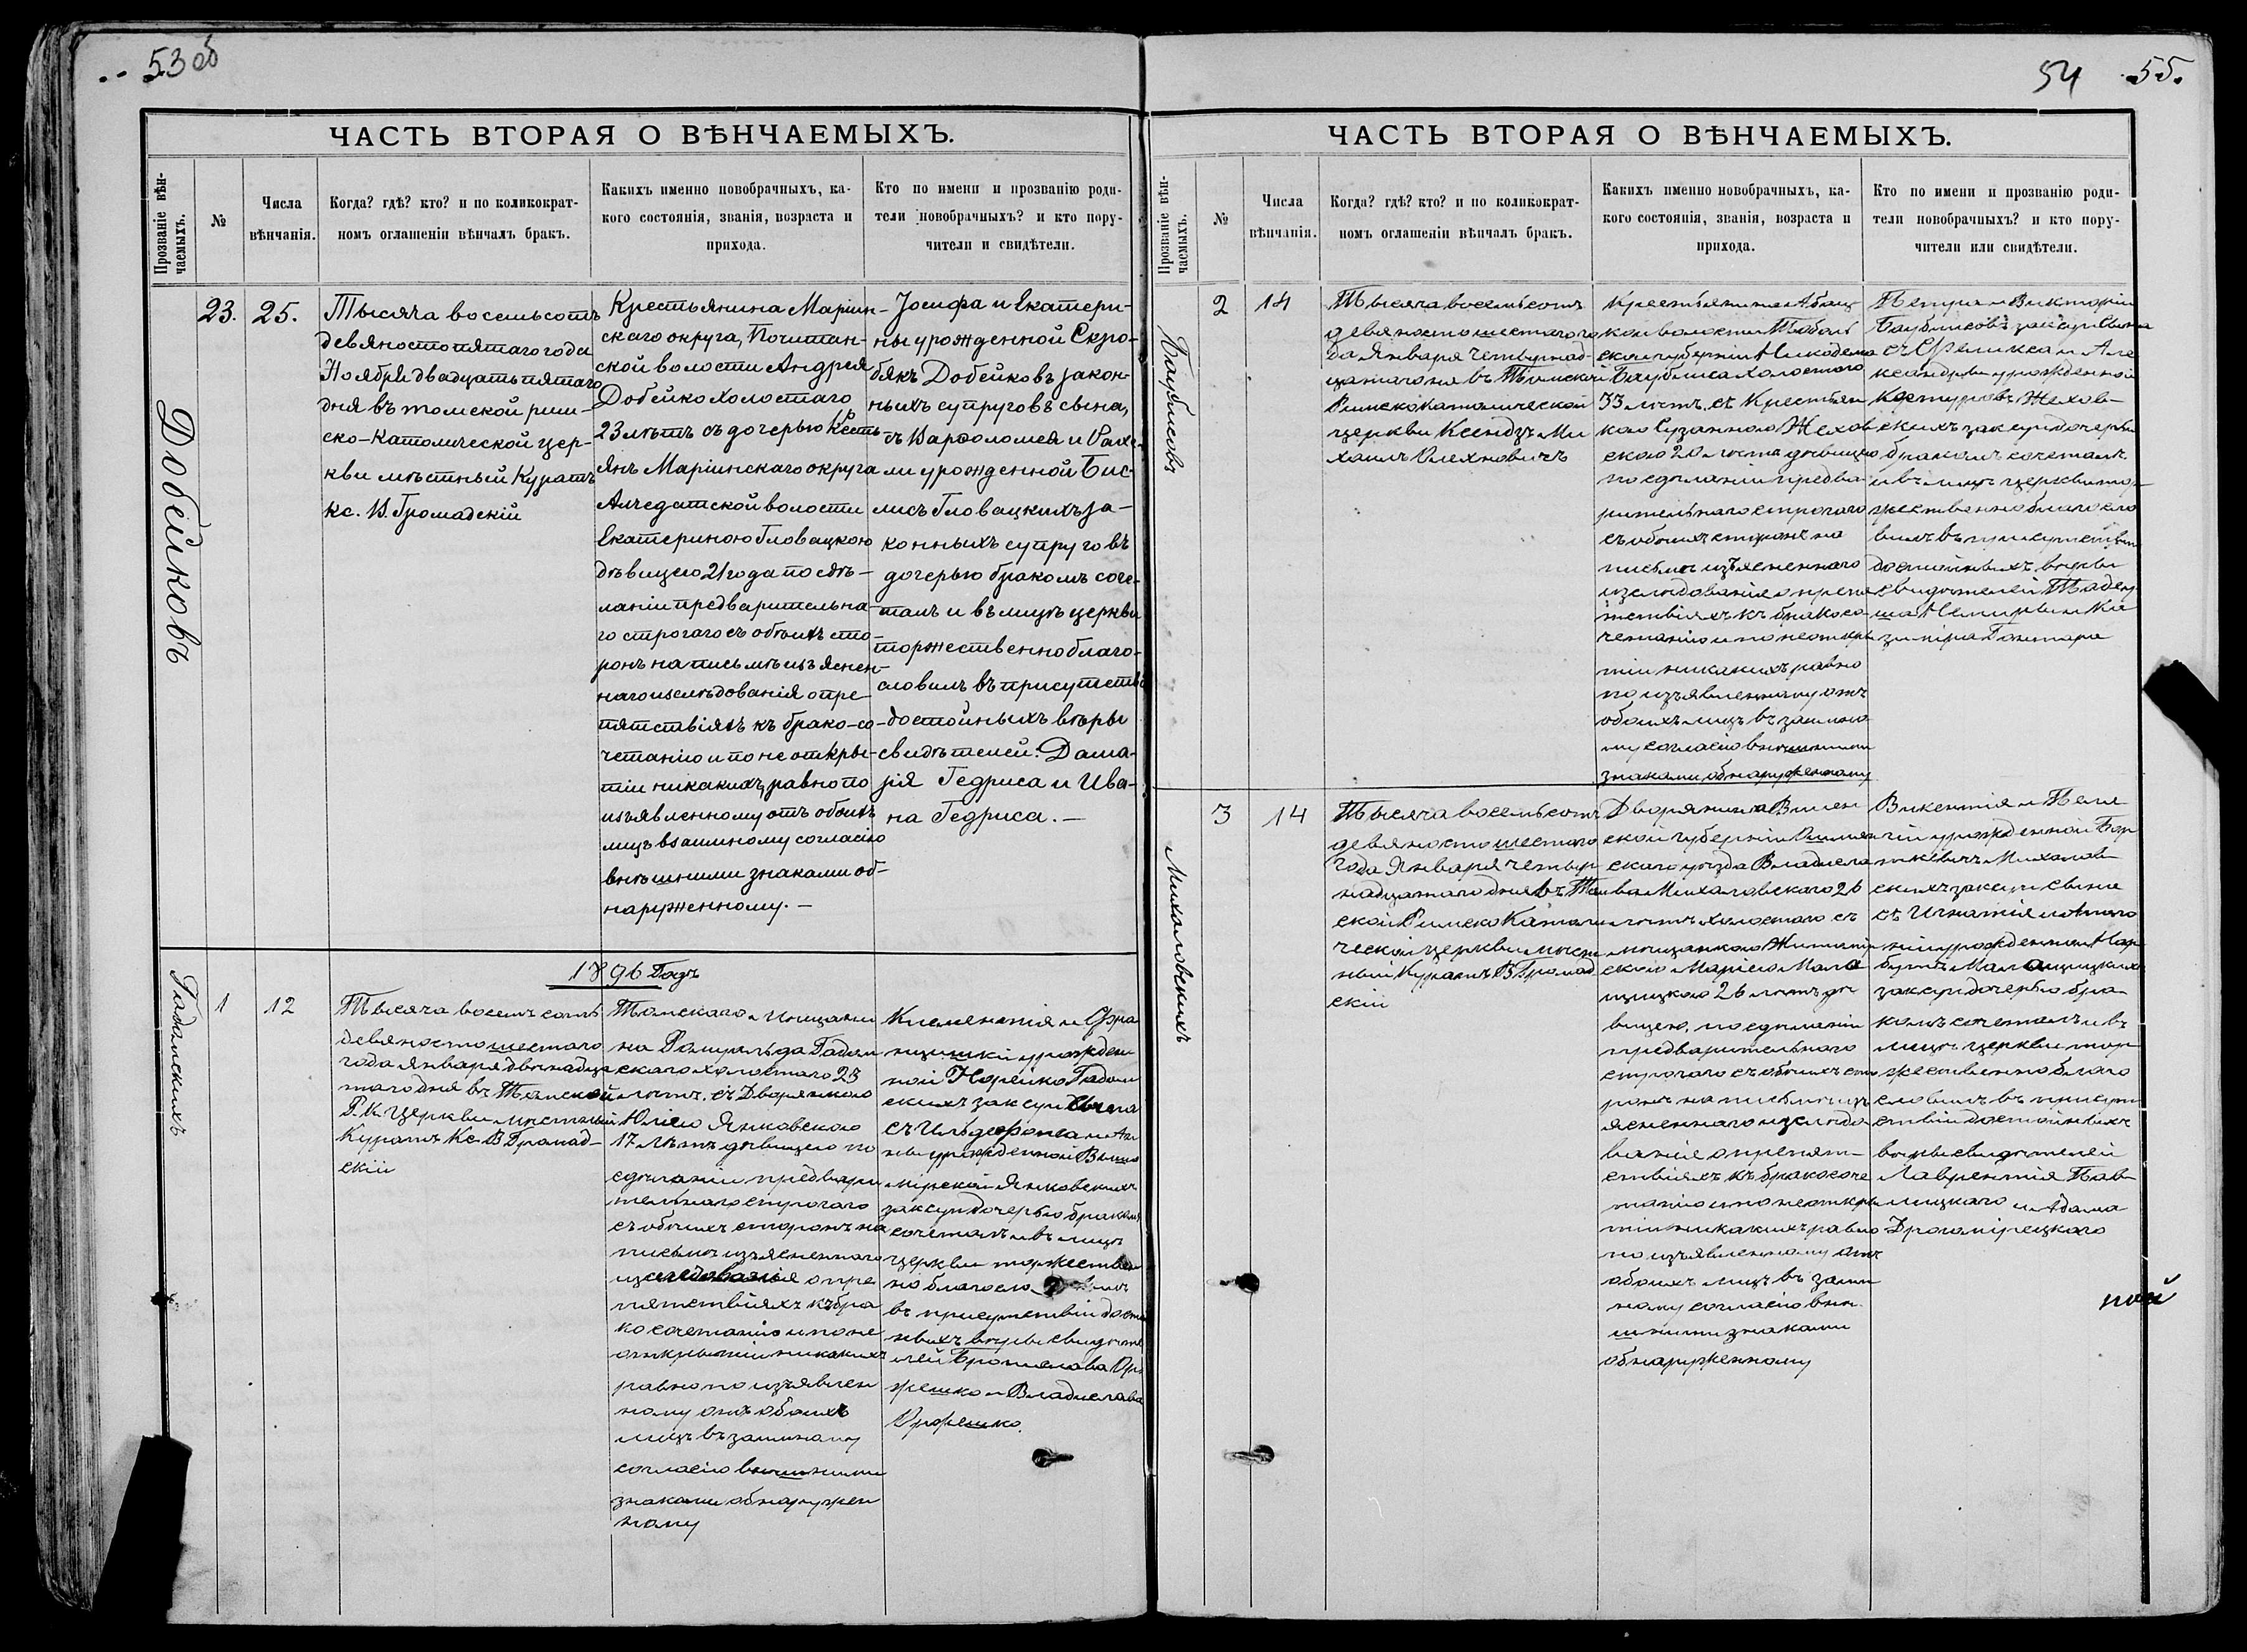 53 об
ЧАСТЬ ВТОРАЯ О ВѢНЧАЕМЫХЪ.
Прозваніе вѣн-
чаемыхъ.
№
Числа
вѣнчанія.
Когда? гдѣ? кто? и по коликократ-
номъ оглашеніи вѣнчалъ бракъ.
Какихъ именно новобрачныхъ, ка-
кого состоянія, званія, возраста и
прихода.
Кто по имени и прозванію роди-
тели новобрачныхъ? и кто пору-
чители и свидѣтели.
Добейковъ
23.
25.
Тысяча восемьсотъ
девяносто пятаго года
Ноября двадцать пятаго
дня въ томской рим-
ско-католической цер-
кви мѣстный Куратъ
кс. В. Громадскій
Крестьянина Маріин-
скаго округа, Почитан-
ской волости Андрея
Добейко холостаго
23 лѣтъ съ дочерью Кресть-
янъ Маріинскаго округа
Алчедатской волости
Екатериною Гловацкою
дѣвицею 21 года по сдѣ-
ланіи предварительна-
го строгаго съ обоихъ сто-
ронъ на письмѣ изъяснен-
наго изслѣдованія о пре-
пятствіяхъ къ брако-со-
четанію и по не откры-
тіи никакихъ, равно по
изъявленному отъ обоихъ
лицъ взаимному согласію
внѣшними знаками об-
наруженному. —
Іосифа и Екатери-
ны урожденной Скро-
бякъ Добейковъ закон-
ныхъ супруговъ сына,
съ Варѳоломея и Рахе-
ли урожденной Бис-
лисъ Гловацкихъ за-
конныхъ супруговъ
дочерью бракомъ соче-
талъ и въ лицѣ церкви
торжественно благо-
словилъ въ присутствіи
достойныхъ вѣры
свидѣтелей: Дама-
зія Гедриса и Ива-
на Гедриса. —
1896 Годъ
Гадомскихъ
1
12
Тысяча восемьсотъ
девяносто шестаго
года января двѣнадца
таго дня въ Томской
Р. К. Церкви мѣстный
Куратъ Кс. В Громад-
скій
Томскаго мѣщани
на Ромуальда Гадом
скаго холостаго 23
лѣтъ, съ Дворянкою
Юліею Янковскою
17 лѣтъ дѣвицею по
сдѣланіи предвари
тельнаго строгаго
съ обоихъ сторонъ на
письмѣ изъясненнаго
изслѣдованія о пре
пятствіяхъ къ бра
косочетанію и по не
открытіи никакихъ
равно по изъявлен
ному отъ обоихъ
лицъ взаимному
согласію внѣшними
знаками обнаружен
ному
Климентія и Фра
нцишки урожден
ной Норейко Гадом
скихъ зак суп Сына
съ Ильдефонса и Ан
ны урожденной
Янковскихъ
зак суп дочерью бракомъ
сочеталъ и въ лицѣ
церкви торжествен
но благосло вилъ
въ присутствіи достой
ныхъ вѣры свидѣте
лей Бронислава Орж
жешко и Владислава
Оржешко.
54 55.
ЧАСТЬ ВТОРАЯ О ВѢНЧАЕМЫХЪ.
Прозваніе вѣн-
чаемыхъ.
№
Числа
вѣнчанія.
Когда? гдѣ? кто? и по коликократ-
номъ оглашеніи вѣнчалъ бракъ.
Какихъ именно новобрачныхъ, ка-
кого состоянія, званія, возраста и
прихода.
Кто по имени и прозванію роди-
тели новобрачныхъ? и кто пору-
чители или свидѣтели.
Баублисовъ
2
14
Тысяча восемьсотъ
девяносто шестаго го
да Января четырнад-
цатаго дня въ Томской
Римско Католической
церкви Ксендзъ Ми
хаилъ Олехновичъ
Крестьянина Абац
кой волости Тоболь
ской губерніи Никодема
Баублиса холостаго
33 лѣтъ, съ Крестьян
кою Сузанною Жехов
скою 20 лѣтъ дѣвицею
по сдѣланіи предва-
рительнаго строгаго
съ обоихъ сторонъ на
письмѣ изъясненнаго
изслѣдованія о препя
тствіяхъ къ бракосо-
четанію и по неоткры
тіи никакихъ равно
по изъявленному отъ
обоихъ лицъ взаимно
му согласію внѣшними
знаками обнаруженному
Петра и Викторіи
Баублисовъ зак суп Сына
съ Феликса и Але
ксандры урожденной
Костуровъ Жехов-
скихъ зак суп дочерью
бракомъ сочеталъ
и въ лицѣ церкви тор-
жественно благосло
вилъ въ присутствіи
достойныхъ вѣры
свидѣтелей Тадеу
ша и Ка
зиміра
Михаловскихъ
3
14
Тысяча восемьсотъ
девяносто шестаго
года Января четыр
надцатаго дня въ Том
ской Римско Католи
ческой церкви мѣст
ный Куратъ В Громад
скій
Дворянина Вилен
ской губерніи Ошмян
скаго уѣзда Владисла
ва Михаловскаго 26
лѣтъ холостаго съ
мѣщанкою
Маріею Мало
щицкою 26 лѣтъ дѣ
вицею, по сдѣланіи
предварительнаго
строгаго съ обоихъ сто
ронъ на письмѣ изъ
ясненнаго изслѣдо
ванія о препят-
ствіяхъ къ бракосоче
танію и по неоткры
тіи никакихъ равно
по изъявленному отъ
обоихъ лицъ взаим
ному согласію внѣ
шними знаками
обнаруженному
Викентія и Пела
гіи урожденной Бор
ткевичъ Михалов-
скихъ зак суп Сына
съ Игнатія и Анто
ніи урожденной Нар
бутъ Малощицкихъ
зак суп дочерью бра-
комъ сочеталъ и въ
лицѣ церкви тор
жественно благо
словилъ въ присут
ствіи достойныхъ
вѣры свидѣтелей
Лаврентія Пав-
лицкаго и Адама
Драгомірецкаго